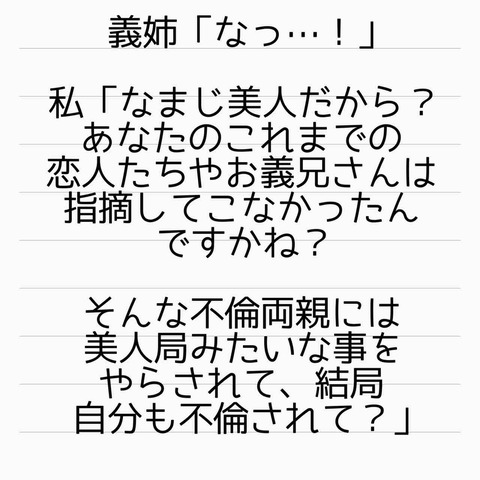 義姉「なっ…！」
私「なまじ美人だから？
あなたのこれまでの
恋人たちやお義兄さんは
指摘してこなかったん
ですかね？
そんな不倫両親には
美人局みたいな事を
やらされて、結局
自分も不倫されて？」